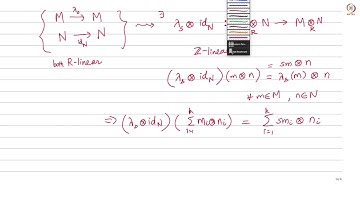 { M --λ_s--> M
N --id_N--> N } ⇝ ∃ λ_s ⊗ id_N : ⊗ N → M ⊗_R N
both R-linear
ℤ-linea
(λ_s ⊗ id_N)(m ⊗ n) = sm ⊗ n
= λ_s(m) ⊗ n
∀ m∈M, n∈N
⇒ (λ_s ⊗ id_N)(∑_{i=1}^k m_i ⊗ n_i) = ∑_{i=1}^k sm_i ⊗ n_i